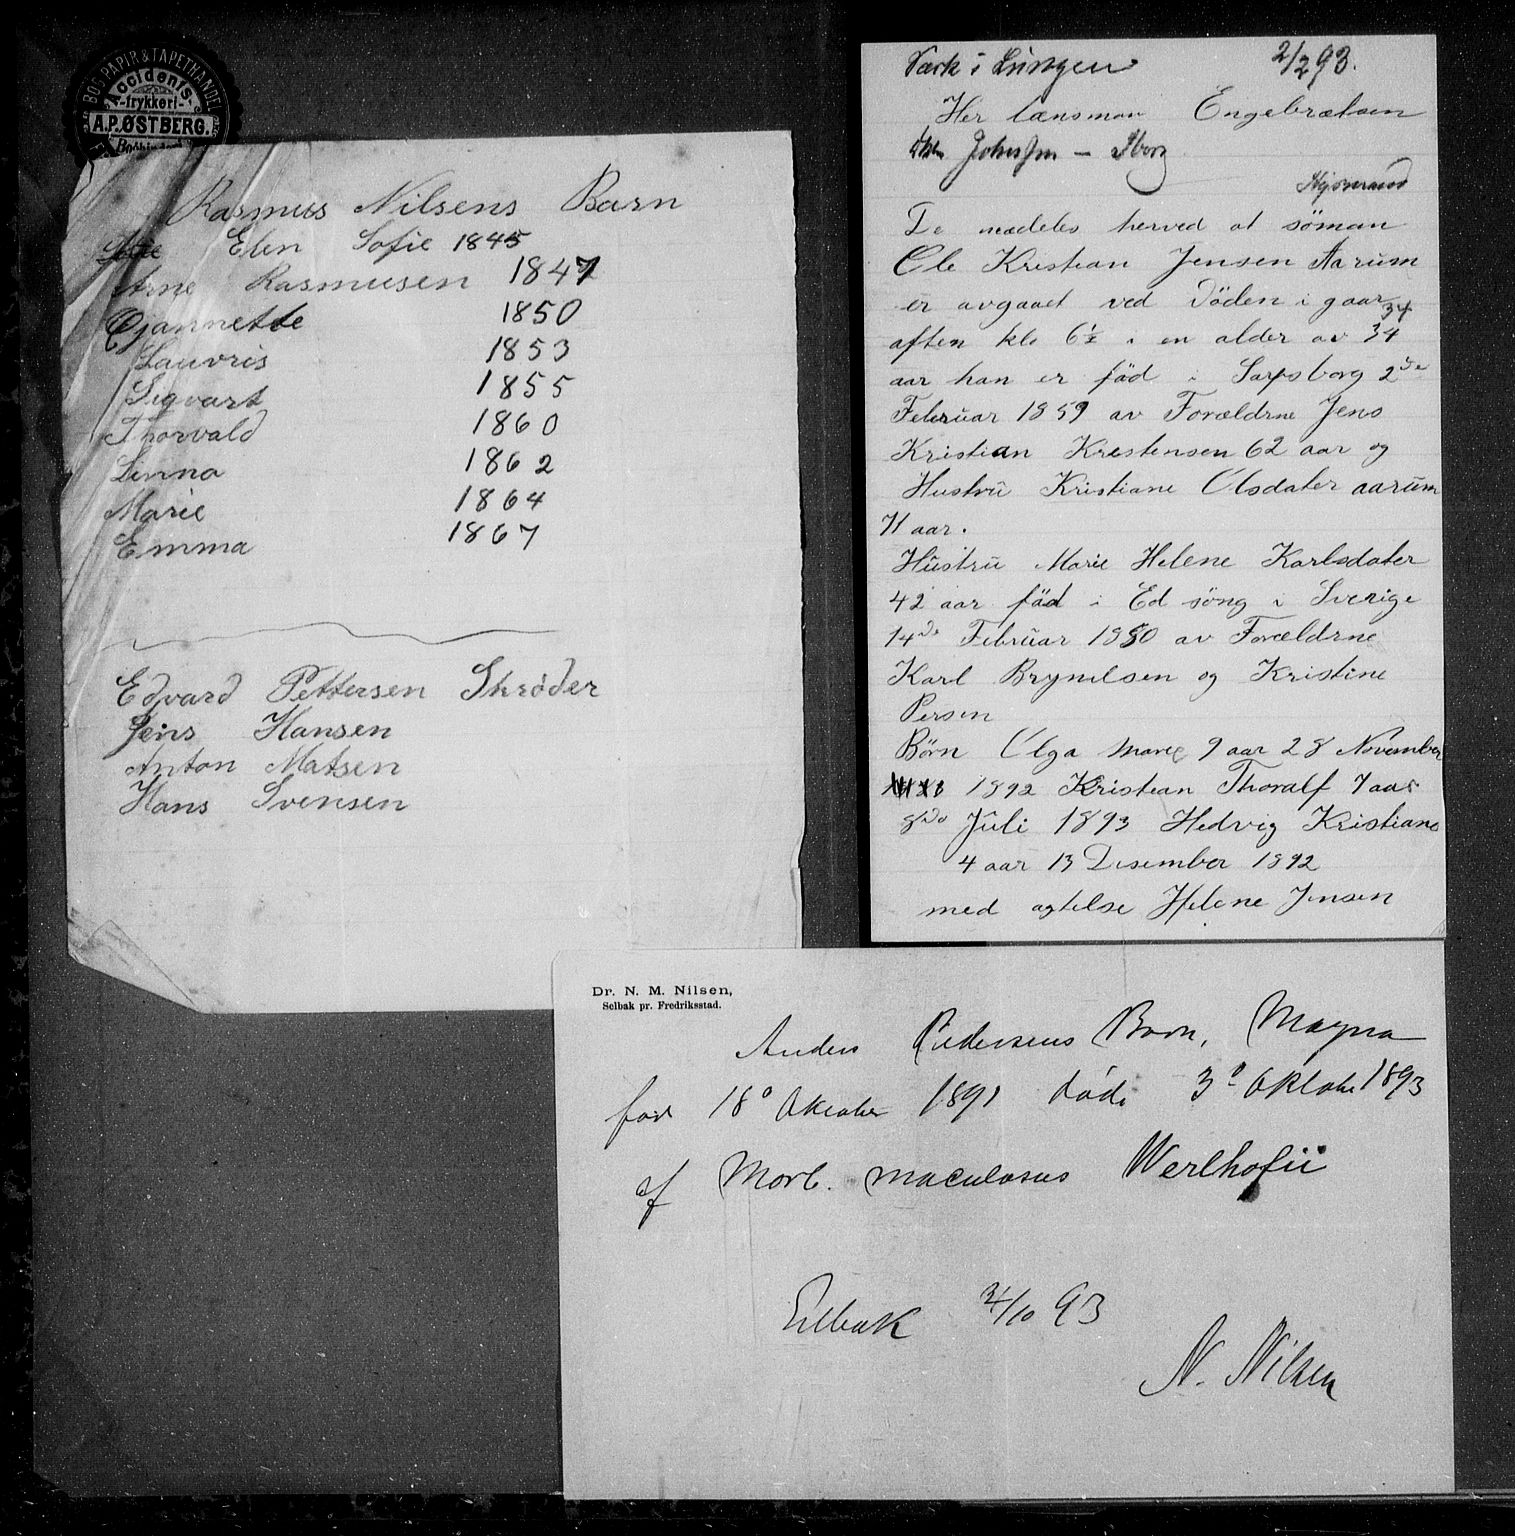 BOG, PAPIR & TAPETHANDEL
Accidents-
trykkeri
A.P. ØSTBERG.
Bogbinderi
Rasmus Nilsens Barn
Elen Sofie 1845
Arne Rasmusen 1847
Gjannette 1850
Lauvris 1853
Sigvart 1855
Thorvald 1860
Linna 1862
Marie 1864
Emma 1867
Edvard Pettersen Skrøder
Jens Hansen
Anton Matsen
Hans Svensen
Værk i Lungen 2/2 93.
Her lænsman Engebrætsen
Johnsen - Sborg
De mædeles herved at søman
Ole Kristian Jensen Aarum
er avgaaet ved Døden i gaar
34
aften kle 6½ i en alder av 34
aar han er fød i Sarpsborg 2de
Februar 1859 av Forældrne Jens
Kristian Krestensen 62 aar og
Hustru Kristiane Olsdater aarum
71 aar.
Hustru Marie Helene Karlsdater
42 aar fød i Ed søng i Sverige
14de Februar 1850 av Forældrne
Karl Brynelsen og Kristine
Persen
Børn Olga Marie 9 aar 28 November
1892 Kristian Thoralf 7 aar
8de Juli 1893 Hedvig Kristiane
4 aar 13 Desember 1892
med agtelse Helene Jensen
Dr. N. M. Nilsen,
Selbak pr. Fredriksstad.
Anders Pedersens Barn, Magna
fød 18º Oktober 1891 døde 3º Oktober 1893
af Morb. maculosus Werlhofii
Selbak /10 93
N. Nilsen